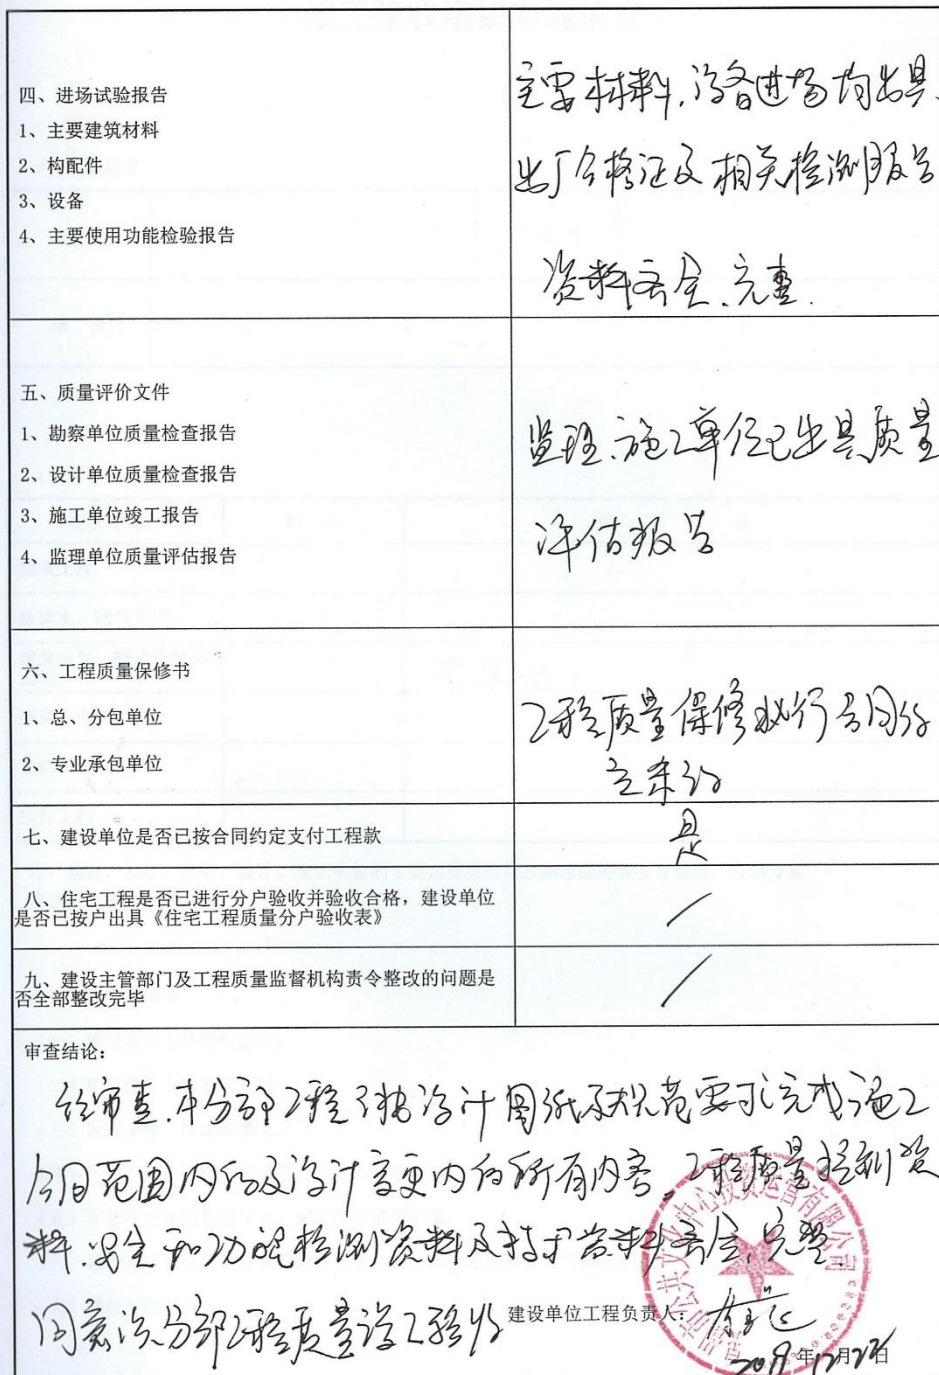 四、进场试验报告
1、主要建筑材料
2、构配件
3、设备
4、主要使用功能检验报告
主要材料、设备进场均出具
出厂合格证及相关检测报告
资料齐全、完整.
五、质量评价文件
1、勘察单位质量检查报告
2、设计单位质量检查报告
3、施工单位竣工报告
4、监理单位质量评估报告
监理、施工单位已出具质量
评估报告
六、工程质量保修书
1、总、分包单位
2、专业承包单位
工程质量保修执行合同约
定条约
七、建设单位是否已按合同约定支付工程款
是
八、住宅工程是否已进行分户验收并验收合格，建设单位
是否已按户出具《住宅工程质量分户验收表》
/
九、建设主管部门及工程质量监督机构责令整改的问题是
否全部整改完毕
/
审查结论：
经审查,本分部工程已按设计图纸及规范要求完成施工
合同范围内的及设计变更内的所有内容。工程质量控制资
料、安全和功能检测资料及技术资料齐全、完整
同意该分部工程质量竣工验收
建设单位工程负责人：
2019年12月27日
公共文化中心投资运营有限公司